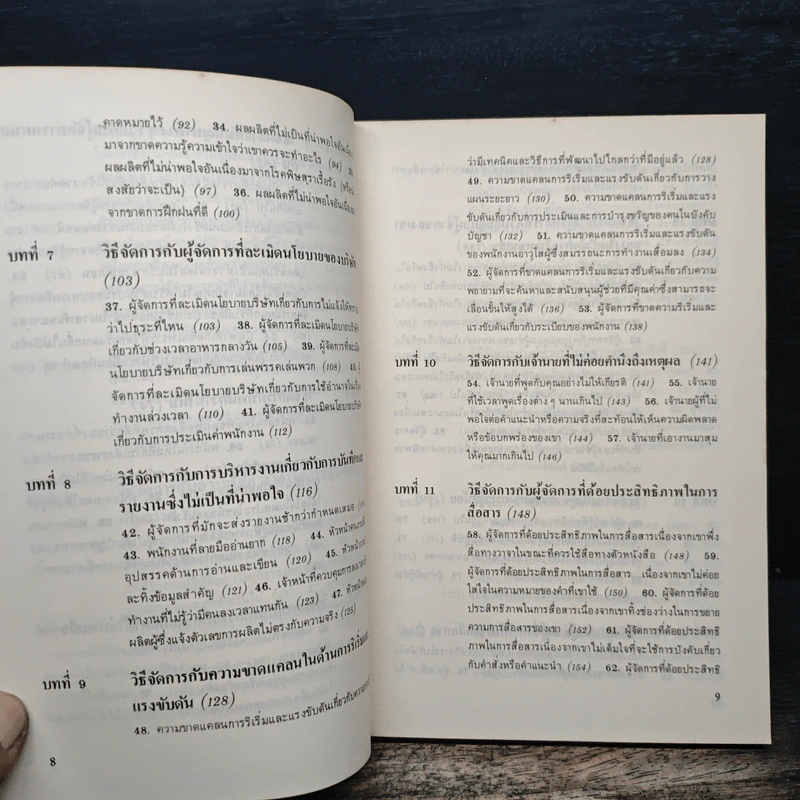 คาดหมายไว้ (92) 34. ผลผลิตที่ไม่เป็นที่น่าพอใจอันเนื่อง
มาจากขาดความรู้ความเข้าใจว่าเขาควรจะทำอะไร (94)
ผลผลิตที่ไม่น่าพอใจอันเนื่องมาจากโรคพิษสุราเรื้อรัง (หรือ
สงสัยว่าจะเป็น) (97) 36. ผลผลิตที่ไม่น่าพอใจอันเนื่อง
จากขาดการฝึกฝนที่ดี (100)
บทที่ 7 วิธีจัดการกับผู้จัดการที่ละเมิดนโยบายของบริษัท
(103)
37. ผู้จัดการที่ละเมิดนโยบายบริษัทเกี่ยวกับการไม่แจ้งให้ทราบ
ว่าไปธุระที่ไหน (103) 38. ผู้จัดการที่ละเมิดนโยบายบริษัท
เกี่ยวกับช่วงเวลาอาหารกลางวัน (105) 39. ผู้จัดการที่ละเมิด
นโยบายบริษัทเกี่ยวกับการเล่นพรรคเล่นพวก (108) 40. ผู้
จัดการที่ละเมิดนโยบายบริษัทเกี่ยวกับการใช้อำนาจในเรื่อง
ทำงานล่วงเวลา (110) 41. ผู้จัดการที่ละเมิดนโยบายบริษัท
เกี่ยวกับการประเมินค่าพนักงาน (112)
บทที่ 8 วิธีจัดการกับการบริหารงานเกี่ยวกับการบันทึกและ
รายงานซึ่งไม่เป็นที่น่าพอใจ (116)
42. ผู้จัดการที่มักจะส่งรายงานช้ากว่ากำหนดเสมอ
43. พนักงานที่ลายมืออ่านยาก (118) 44. หัวหน้าคนงานที่มี
อุปสรรคด้านการอ่านและเขียน (120) 45. หัวหน้า
ละทิ้งข้อมูลสำคัญ (121) 46. เจ้าหน้าที่ควบคุมการลงเวลา
ทำงานที่ไม่รู้ว่ามีคนลงเวลาแทนกัน (123) 47. หัวหน้า
ผลิตผู้ซึ่งแจ้งตัวเลขการผลิตไม่ตรงกับความจริง (125)
บทที่ 9 วิธีจัดการกับความขาดแคลนในด้านการริเริ่มและ
แรงขับดัน (128)
48. ความขาดแคลนการริเริ่มและแรงขับดันเกี่ยวกับ
8
ว่ามีเทคนิคและวิธีการที่พัฒนาไปไกลกว่าที่มีอยู่แล้ว (128)
49. ความขาดแคลนการริเริ่มและแรงขับดันเกี่ยวกับการวาง
แผนระยะยาว (130) 50. ความขาดแคลนการริเริ่มและแรงขับ
ดันเกี่ยวกับการประเมินและการบำรุงขวัญของคนในบังคับ
บัญชา (132) 51. ความขาดแคลนการริเริ่มและแรงขับดัน
ของพนักงานอาวุโสผู้ซึ่งสมรรถนะการทำงานเสื่อมลง (134)
52. ผู้จัดการที่ขาดแคลนการริเริ่มและแรงขับดันเกี่ยวกับความ
พยายามที่จะค้นหาและสนับสนุนผู้ช่วยที่มีคุณค่าซึ่งสามารถจะ
เลื่อนขั้นให้สูงได้ (136) 53. ผู้จัดการที่ขาดความริเริ่มและ
แรงขับดันเกี่ยวกับระเบียบของพนักงาน (138)
บทที่ 10 วิธีจัดการกับเจ้านายที่ไม่ค่อยคำนึงถึงเหตุผล (141)
54. เจ้านายที่พูดกับคุณอย่างไม่ให้เกียรติ (141) 55. เจ้านาย
ที่ใช้เวลาพูดเรื่องต่าง ๆ นานเกินไป (143) 56. เจ้านายผู้ที่ไม่
พอใจต่อคำแนะนำหรือความจริงที่สะท้อนให้เห็นความผิดพลาด
หรือข้อบกพร่องของเขา (144) 57. เจ้านายที่เอางานมาสุม
ให้คุณมากเกินไป (146)
บทที่ 11 วิธีจัดการกับผู้จัดการที่ด้อยประสิทธิภาพในการ
สื่อสาร (148)
58. ผู้จัดการที่ด้อยประสิทธิภาพในการสื่อสารเนื่องจากเขาพึ่ง
สื่อทางวาจาในขณะที่ควรใช้สื่อทางตัวหนังสือ (148) 59.
ผู้จัดการที่ด้อยประสิทธิภาพในการสื่อสาร เนื่องจากเขาไม่ค่อย
ใส่ใจในความหมายของคำที่เขาใช้ (150) 60. ผู้จัดการที่ด้อย
ประสิทธิภาพในการสื่อสารเนื่องจากเขาทิ้งช่องว่างในการขยาย
ความการสื่อสารของเขา (152) 61. ผู้จัดการที่ด้อยประสิทธิ
ภาพในการสื่อสารเนื่องจากเขาไม่เต็มใจที่จะใช้การบังคับเกี่ยว
กับคำสั่งหรือคำแนะนำ (154) 62. ผู้จัดการที่ด้อยประสิทธิ
9